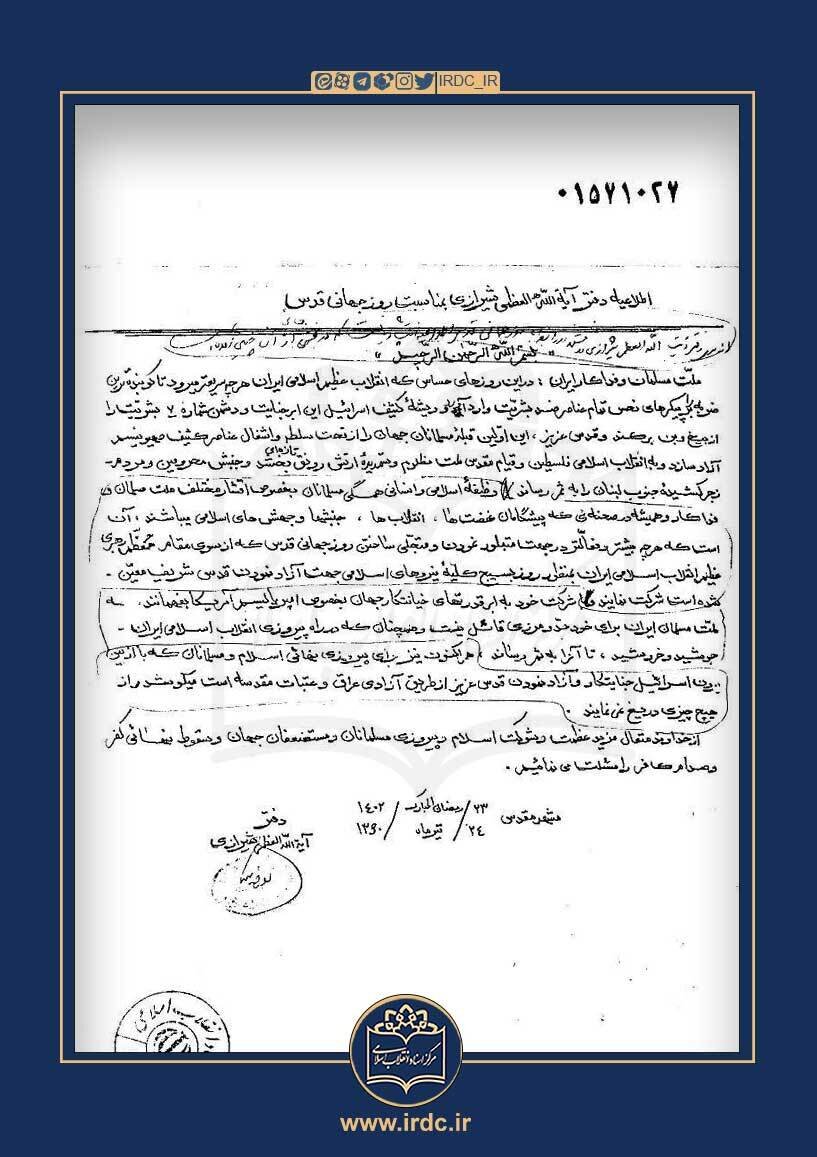 IRDC_IR
۰۱۵۷۱۰۲۷
اطلاعیه دفتر آیة اللّه العظمی شیرازی بمناسبت روز جهانی قدس
بسم اللّه الرّحمن الرّحیم
ملّت مسلمان و فداکار ایران : در این روزهای حساس که انقلاب عظیم اسلامی ایران هر چه سریعتر میرود تا کوبنده‌ترین
ضربه را بر پیکرهای نحس تمام عناصر ضد بشریّت وارد آورد و ریشهٔ کثیف اسرائیل این ابر جنایت و دشمن شماره ۷ بشریّت را
از بیخ و بن برکند و قدس عزیز ، این اولین قبلهٔ مسلمانان جهان را از تحت سلطه و اشغال عناصر کثیف صهیونیسم
آزاد سازد و به انقلاب اسلامی فلسطین و قیام مقدس ملت مظلوم و ستمدیدهٔ رونق تازه‌ای بخشد و جنبش محرومین و مردم
زجر کشیدهٔ جنوب لبنان را به ثمر رساند وظیفهٔ اسلامی و انسانی همگی مسلمانان بخصوص اقشار مختلف ملت مسلمان و
فداکار و همیشه در صحنه‌ی که پیشگامان نهضت‌ها ، انقلاب‌ها ، جنبشها و جهش‌های اسلامی میباشند ، آن
است که هر چه بیشتر و فعالّتر در جهت متبلور نمودن و متجلی ساختن روز جهانی قدس که از سوی مقام معظم رهبری
عظیم انقلاب اسلامی ایران بمنظور روز بسیج کلیهٔ نیروهای اسلامی جهت آزاد نمودن قدس شریف معیّن
شده است شرکت نمایند و با شرکت خود به ابر قدرتهای خیانتکار جهان بخصوص امپریالیسم آمریکا بفهمانند که
ملت مسلمان ایران برای خود حدّ و مرزی قائل نیست و همچنان که در راه پیروزی انقلاب اسلامی ایران
جوشید و خروشید ، تا آنرا به ثمر رساند ، هم اکنون نیز برای پیروزی نهائی اسلام و مسلمانان که با از بین
بردن اسرائیل جنایتکار و آزاد نمودن قدس عزیز از طریق آزادی عراق و عتبات مقدسه است میکوشد و از
هیچ چیزی دریغ نمی نمایند .
از خداوند متعال مزید عظمت و شوکت اسلام و پیروزی مسلمانان و مستضعفان جهان و سقوط نهائی کفر
و صدام کافر را مسئلت می نمائیم .
مشهد مقدس ۲۳/ رمضان المبارک / ۱۴۰۲
۲۴/ تیرماه / ۱۳۶۰
دفتر
آیة اللّه العظمی شیرازی
انقلاب اسلامی
مرکز اسناد انقلاب اسلامی
www.irdc.ir